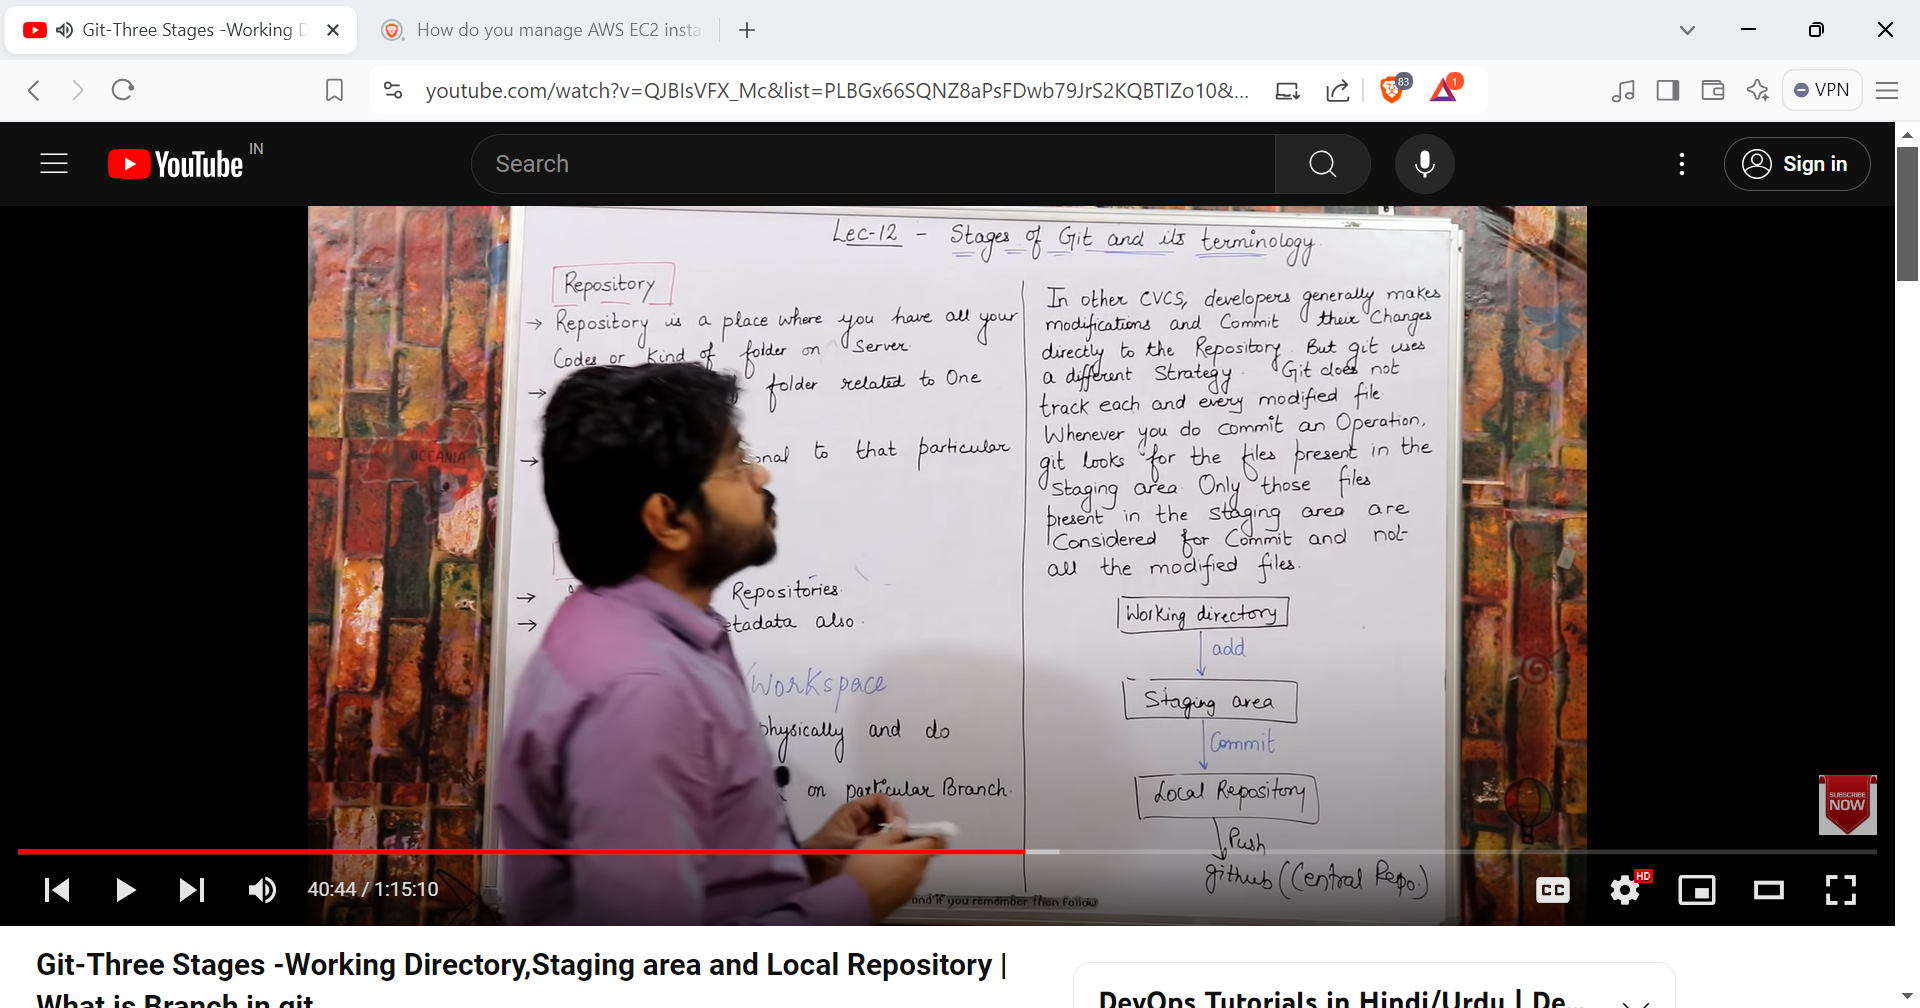 Git-Three Stages -Working D
How do you manage AWS EC2 insta
youtube.com/watch?v=QJBIsVFX_Mc&list=PLBGx66SQNZ8aPsFDwb79JrS2KQBTIZo10&...
83
1
VPN
YouTube IN
Search
Sign in
Lec-12 - Stages of Git and its terminology
Repository
→ Repository is a place where you have all your
Codes or kind of folder on Server.
→ folder related to One
→ onal to that particular
→ Repositories.
→ etadata also.
Workspace
physically and do
on particular Branch.
In other CVCS, developers generally makes
modifications and Commit their Changes
directly to the Repository. But git uses
a different Strategy. Git does not
track each and every modified file.
Whenever you do commit an Operation,
git looks for the files present in the
Staging area. Only those files
present in the staging area are
Considered for Commit and not
all the modified files.
Working directory
add
Staging area
Commit
Local Repository
Push
github (Central Repo.)
OCEANIA
SUBSCRIBE
NOW
and if you remember then follow
40:44 / 1:15:10
CC
HD
Git-Three Stages -Working Directory,Staging area and Local Repository |
What is Branch in git
DevOps Tutorials in Hindi/Urdu | De...